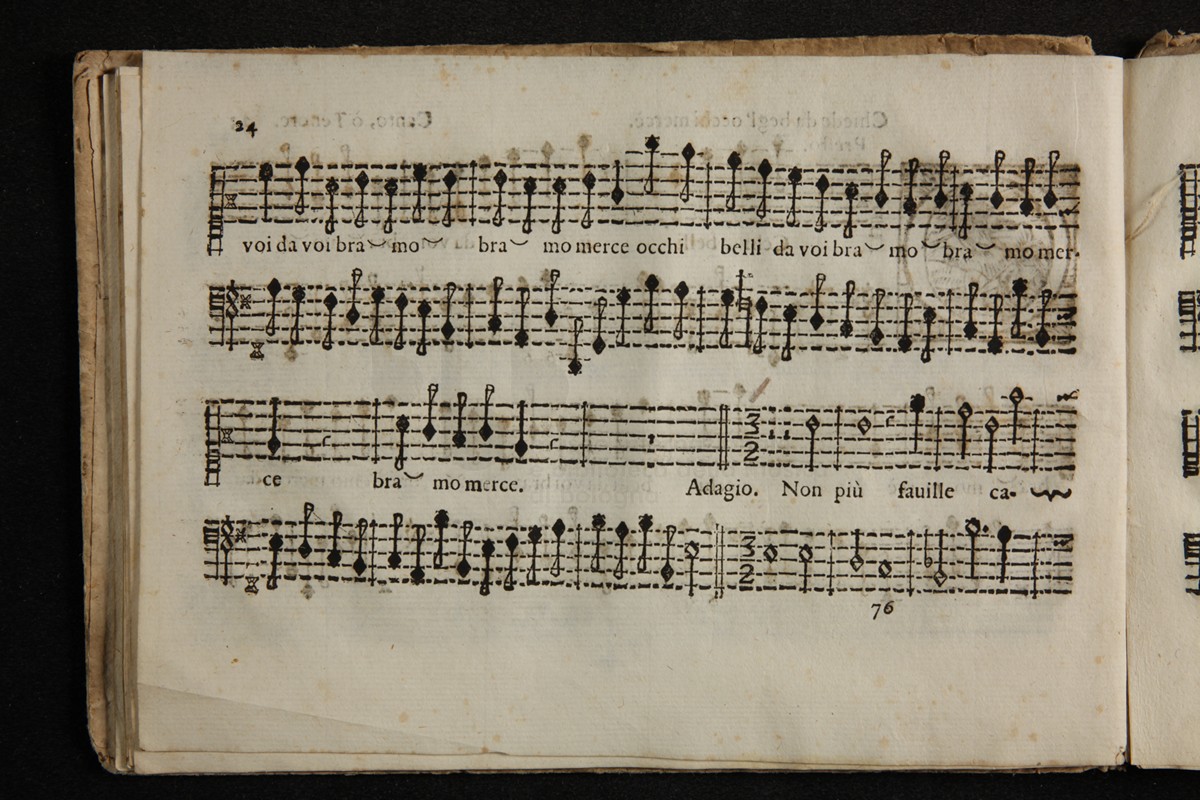 24
voi da voi bra mo bra mo merce occhi belli da voi bra mo bra mo mer-
3
2
ce bra mo merce. Adagio. Non più fauille ca-
3
2
76